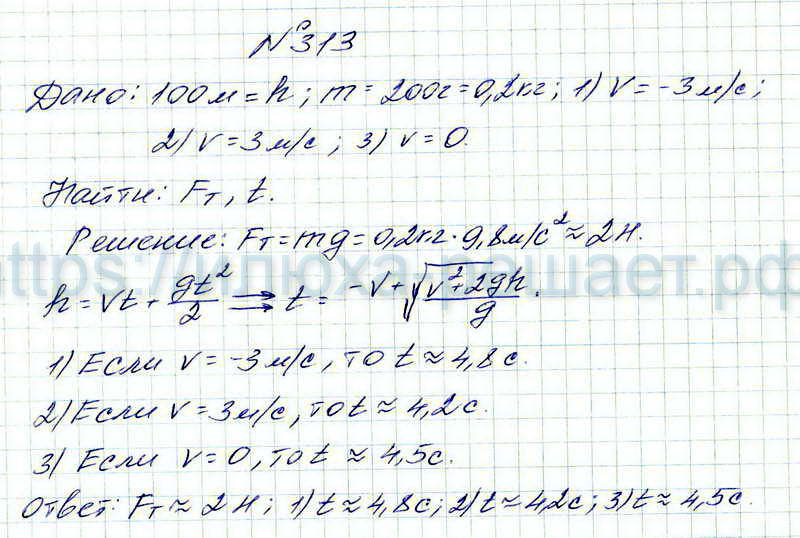 №313
Дано: 100м = h; m = 200г = 0,2кг; 1) v = -3м/с;
2) v = 3м/с; 3) v = 0.
Найти: Fт, t.
Решение: Fт = mg = 0,2кг · 9,8м/с² ≈ 2Н.
https://илюха-решает.рф
h = vt + gt²/2 ⇒ t = (-v + √(v²+2gh))/g.
1) Если v = -3м/с, то t ≈ 4,8с.
2) Если v = 3м/с, то t ≈ 4,2с.
3) Если v = 0, то t ≈ 4,5с.
Ответ: Fт ≈ 2Н; 1) t ≈ 4,8с; 2) t ≈ 4,2с; 3) t ≈ 4,5с.